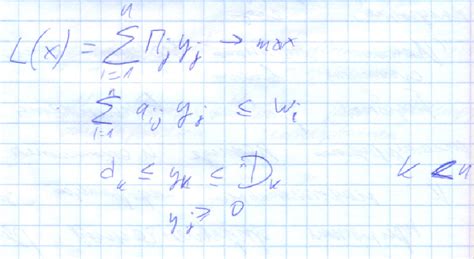 L(x) = n∑i=1 Пj yj → max
n∑i=1 aij yj ≤ Wi
dk ≤ yk ≤ Dk k ≤ n
yj ≥ 0